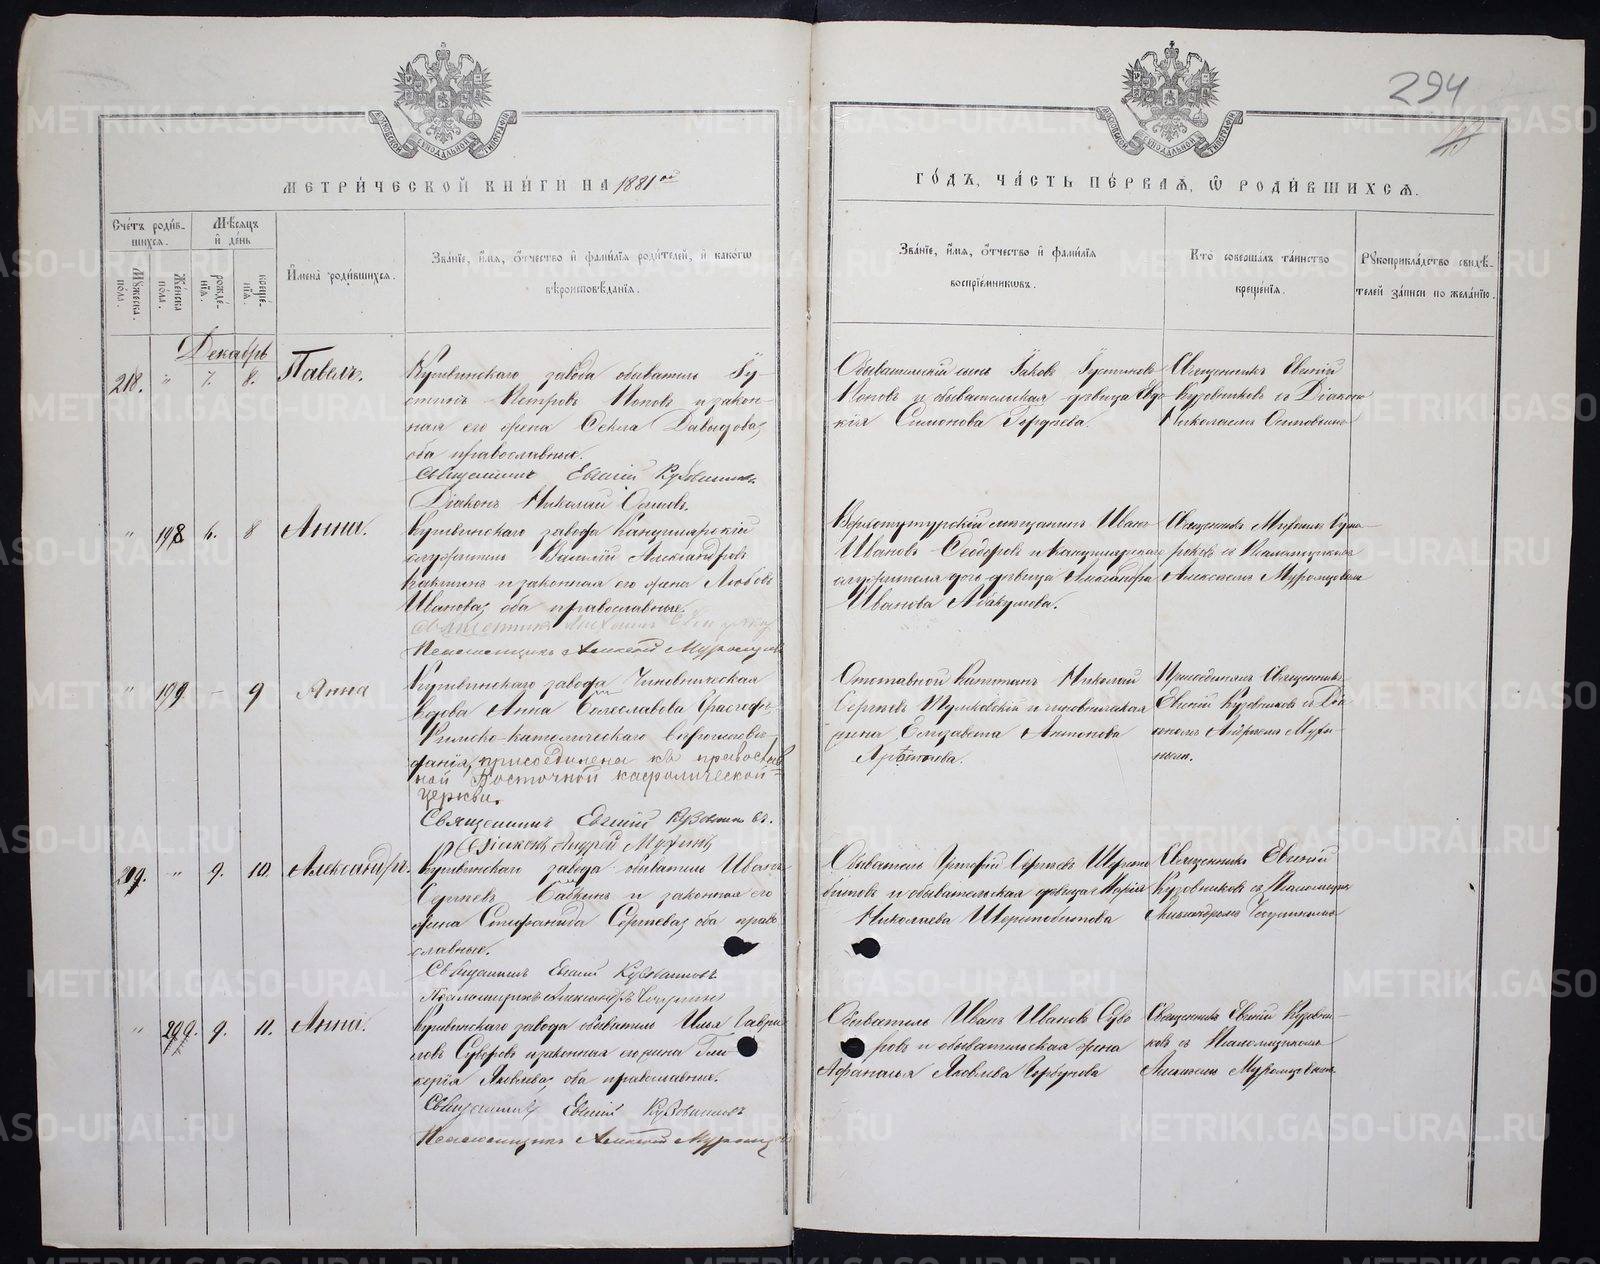 294
МЕТРИЧЕСКОЙ КНИГИ НА 1881ой
ГОДЪ, ЧАСТЬ ПЕРВАЯ, Ѡ РОДИВШИХСЯ.
Счетъ родив-
шихся.
Мужеска
пола.
Женска
пола.
Мѣсяцъ
и день
рожде-
нія.
креще-
нія.
Имена родившихся.
Званіе, имя, отчество и фамилія родителей, и какогѡ
вѣроисповѣданія.
Званіе, имя, отчество и фамилія
воспріемниковъ.
Кто совершалъ таинство
крещенія.
Рукоприкладство свидѣ-
телей записи по желанію.
Декабрь
218. " 7. 8. Павелъ.
Кушвинскаго завода обыватель Іу-
стинъ Петровъ Поповъ и закон-
ная его жена Секла Давыдова,
оба православные.
Священникъ Евгеній Кузовниковъ
Діаконъ Николай Осиповъ.
Обывательскій сынъ Іаковъ Іустиновъ
Поповъ и обывательская дѣвица
кія Симонова Гордѣева.
Священникъ Евгеній
Кузовниковъ съ Діакономъ
Николаемъ Осиповымъ
" 198 6. 8 Анна.
Кушвинскаго завода Канцелярскій
служитель Василій Александровъ
и законная его жена Любовь
Иванова, оба православные.
Священникъ
Псаломщикъ Алексѣй Муромцовъ
Верхотурскій мѣщанинъ Иванъ
Ивановъ Ѳедоровъ и канцелярскаго
служителя дочь дѣвица Александра
Иванова Абакумова.
Священникъ
съ Псаломщикомъ
Алексѣемъ Муромцовымъ
" 199. – 9 Анна
Кушвинскаго завода Чиновническая
вдова Анна Болеславова
Римско-католическаго вѣроисповѣ-
данія, присоединена къ православ-
ной Восточной каѳолической
церкви.
Священникъ Евгеній Кузовниковъ.
Діаконъ Андрей Мухинъ
Отставной Капитанъ Николай
Сергѣевъ и чиновническая
жена Елизавета Антонова
Присоединялъ Священникъ
Евгеній Кузовниковъ съ Діа-
кономъ Андреемъ Мухи-
нымъ.
219. " 9. 10. Александръ.
Кушвинскаго завода обыватель Иванъ
Сергѣевъ Бабкинъ и законная его
жена Стефанида Сергѣева, оба право-
славные.
Священникъ Евгеній Кузовниковъ
Псаломщикъ Александръ
Обыватель Григорій Сергѣевъ
и обывательская дѣвица Марія
Николаева
Священникъ Евгеній
Кузовниковъ съ Псаломщикомъ
Александромъ
" 200. 9. 11. Анна.
Кушвинскаго завода обыватель Илья Гаври-
ловъ Суворовъ и законная его жена Гли-
керія Яковлева, оба православные.
Священникъ Евгеній Кузовниковъ
Псаломщикъ Алексѣй Муромцовъ
Обыватель Иванъ Ивановъ Суво-
ровъ и обывательская жена
Афанасья Яковлева Горбунова
Священникъ Евгеній Кузовни-
ковъ съ Псаломщикомъ
Алексѣемъ Муромцовымъ.
METRIKI.GASO-URAL.RU